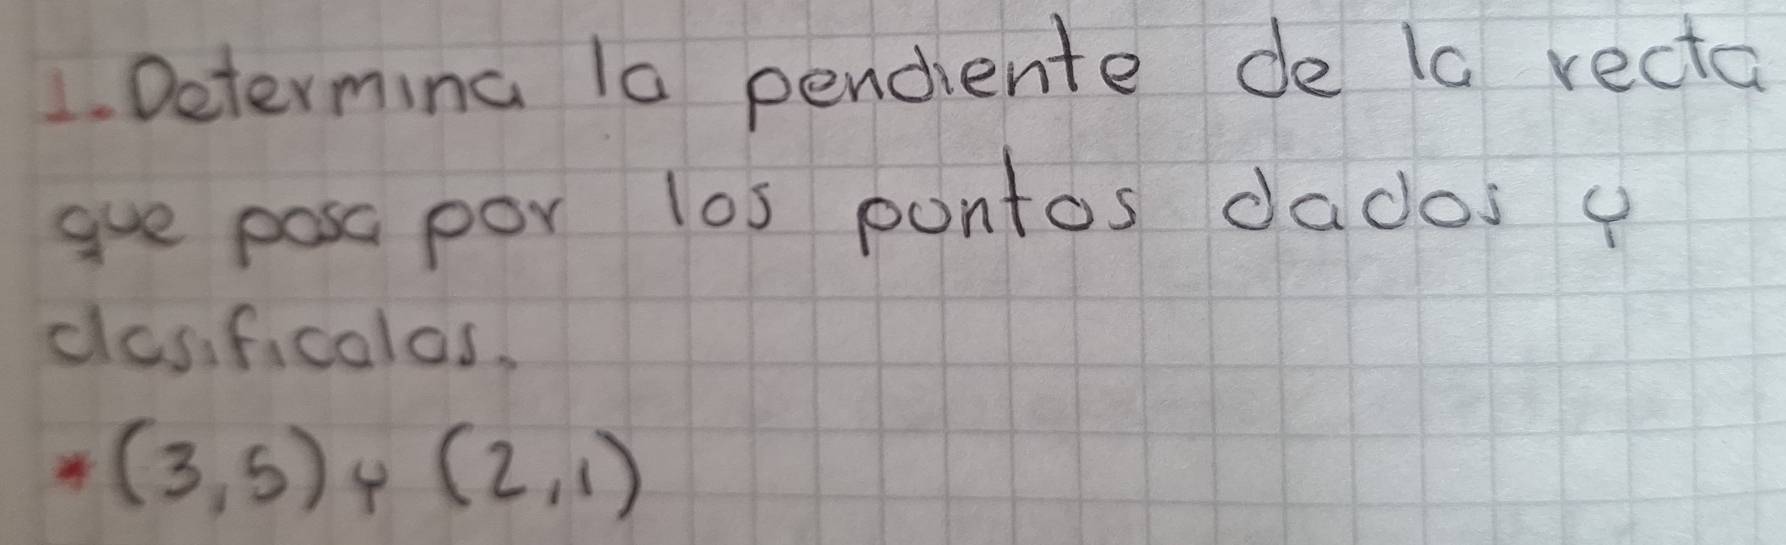 1. Determina la pendiente de la recta
que pasa por los puntos dados y
clasificalas.
* (3,5) y (2,1)